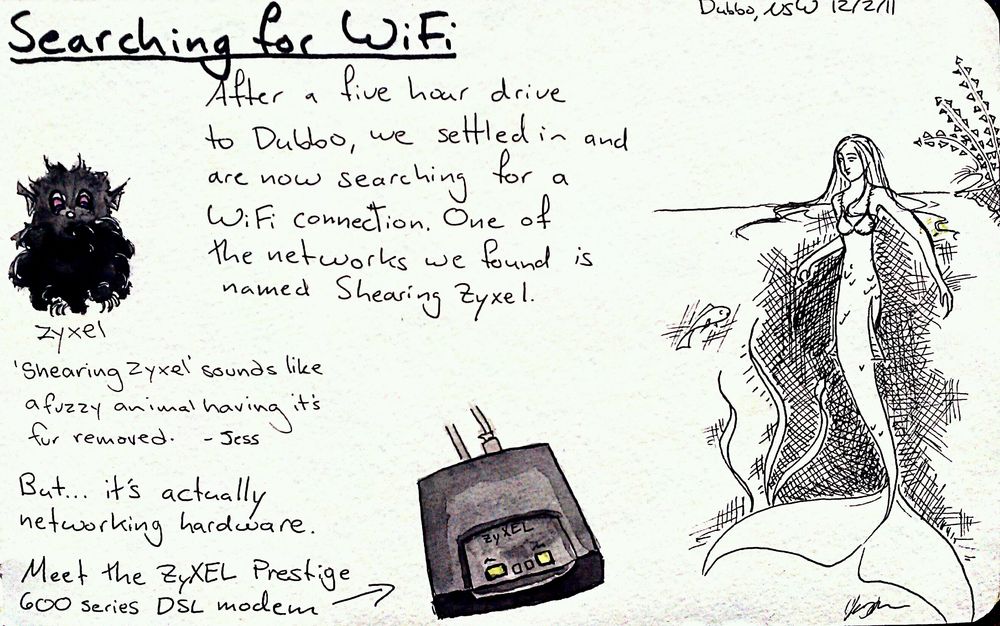 Dubbo, NSW 12/2/11
Searching for WiFi
After a five hour drive
to Dubbo, we settled in and
are now searching for a
WiFi connection. One of
the networks we found is
named Shearing Zyxel.
zyxel
'Shearing Zyxel' sounds like
a fuzzy animal having it's
fur removed. - Jess
But... it's actually
networking hardware.
Meet the ZyXEL Prestige
600 series DSL modem
ZyXEL